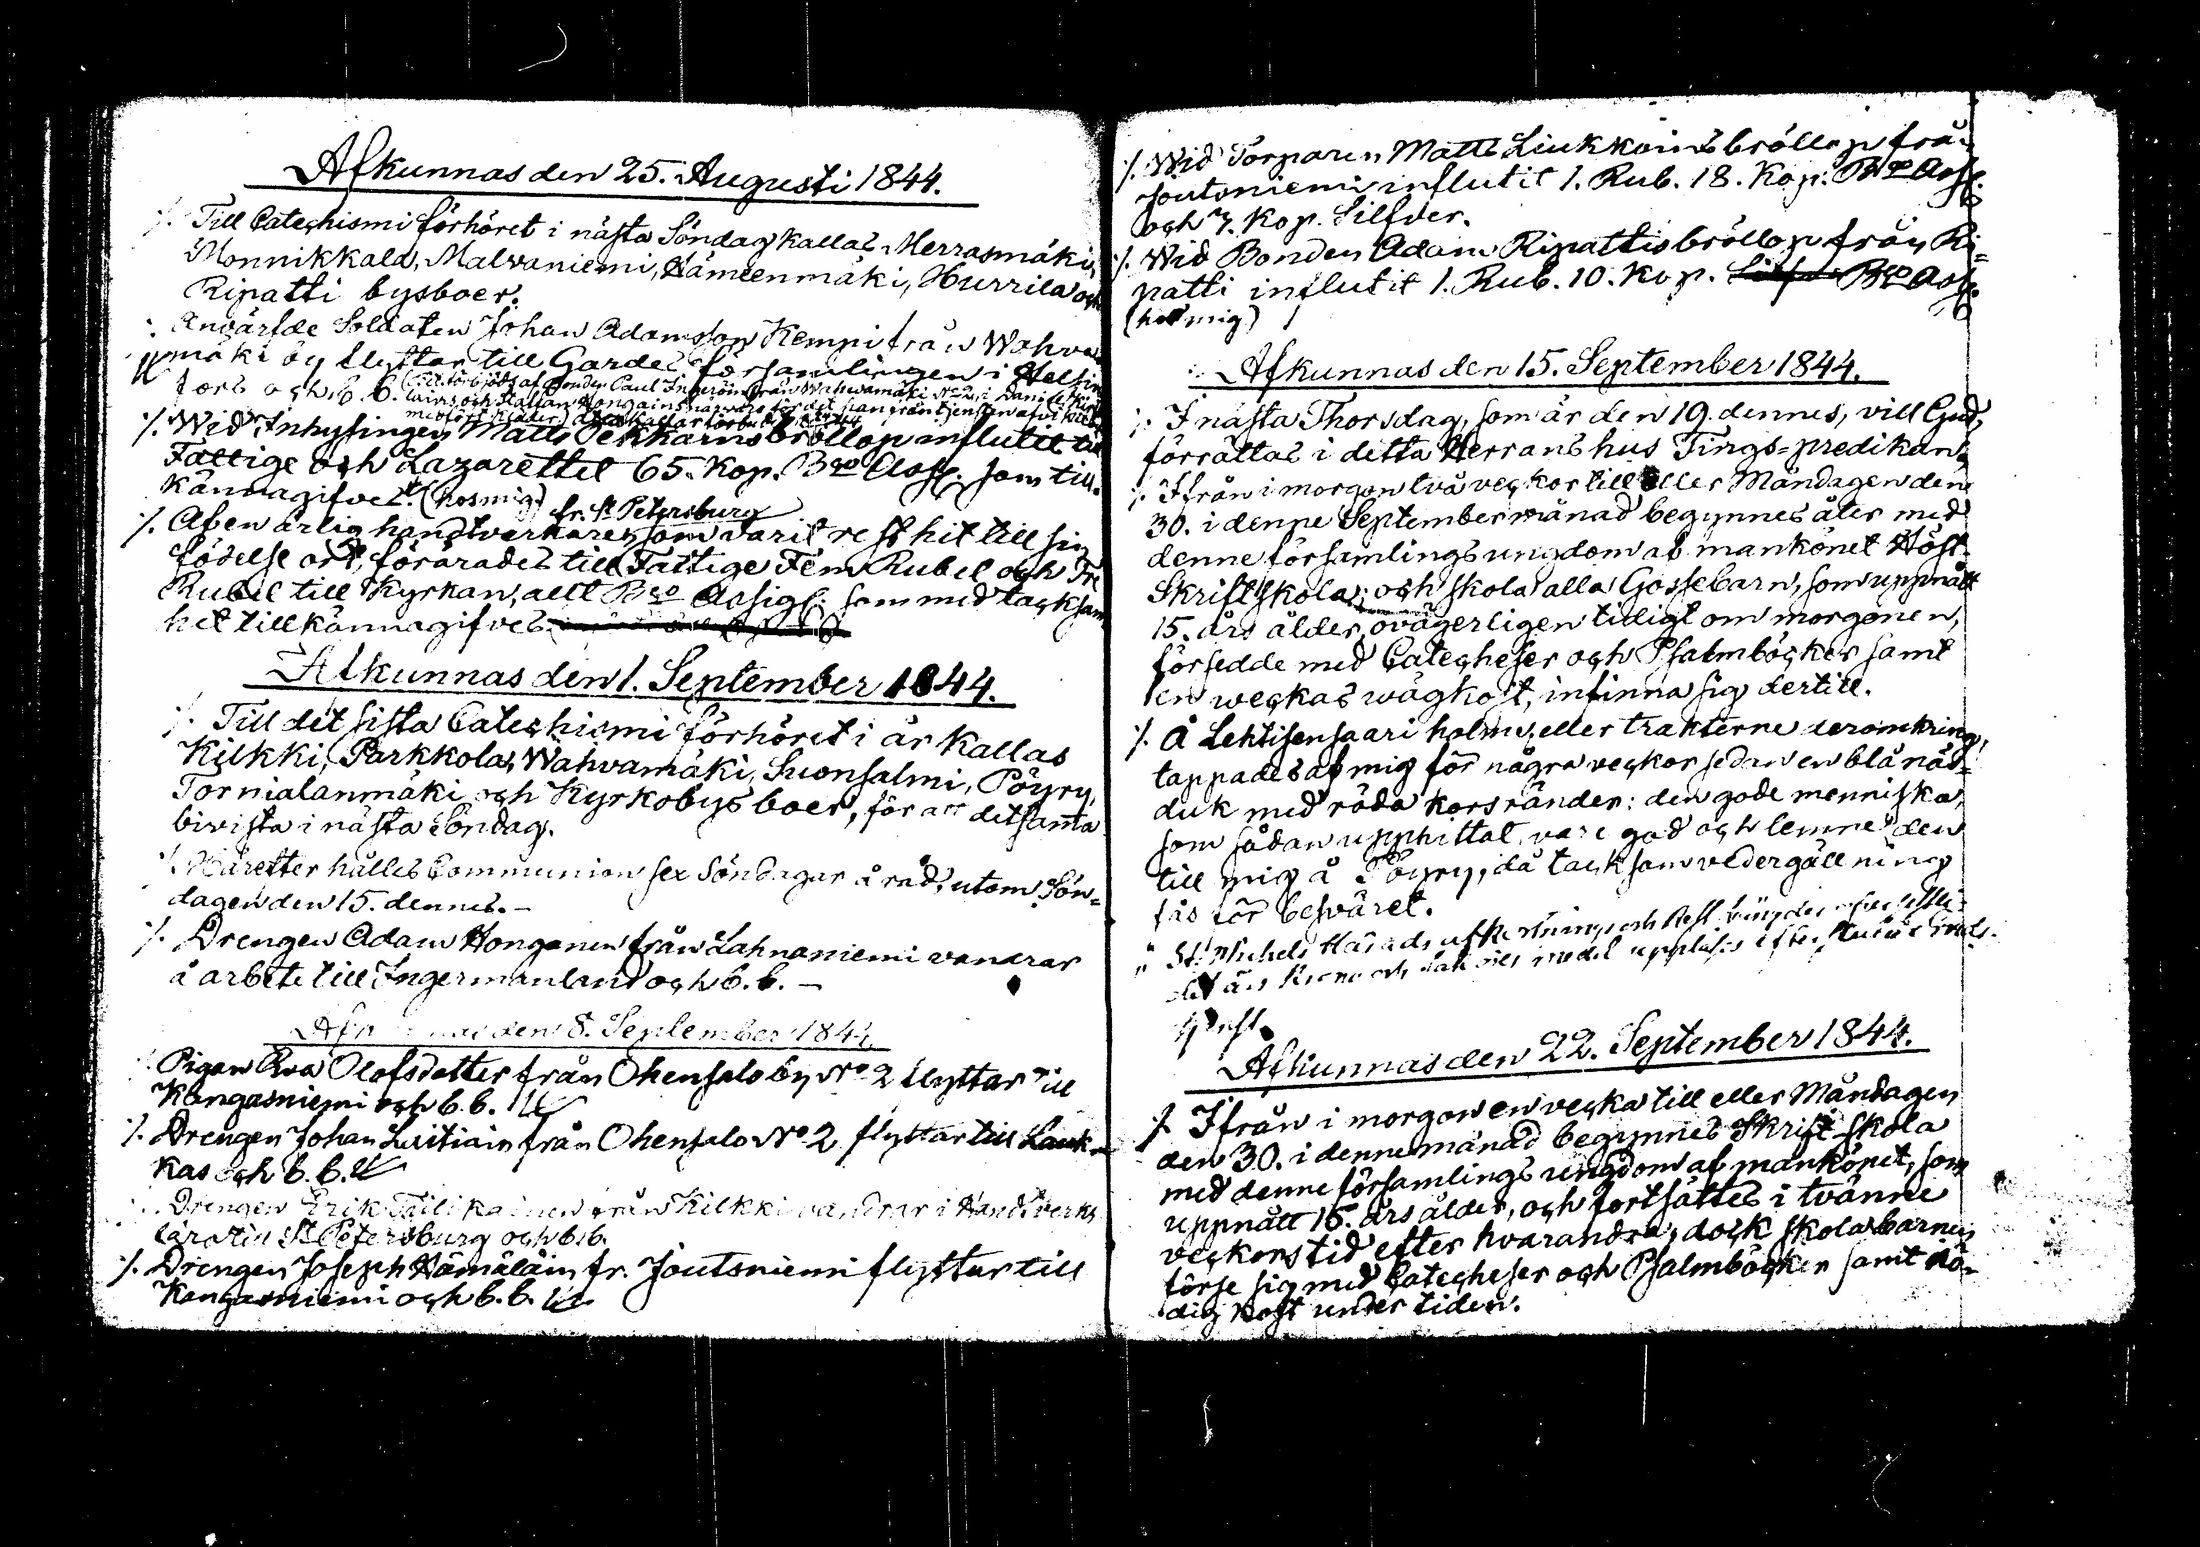 Afkunnas den 25. Augusti 1844.
·/. Till Catechismi förhöret i nästa Söndag kallas Herrasmäki,
Monnikkala, Malvaniemi, Hämeenmäki, Hurrila och
Ripatti bysboer.
·/. Anvärfde Soldaten Johan Adamsson Kempi från Wahva-
mäki by flyttar till Gardes församlingen i Helsing
fors och b. b.
·/. Wid Inhysingen Matts Pekkarins bröllop influtit till
Fattige och Lazarettet 65. Kop. Bco Assg. som till-
kännagifves. (hos mig)
fr. St Petersburg
·/. Af en ärlig handtverkare, som varit rest hit till sin
födelse ort, förärades till Fattige Fem Rubel och Tre
Rubel till Kyrkan, allt Bco Assign. som med tacksam
het tillkännagifves
Afkunnas den 1. September 1844.
·/. Till det sista Catechismi förhöret i år kallas
Kilkki, Parkkola, Wahvamäki, Suonsalmi, Pöyry,
Tornialanmäki och Kyrkobys boer, för att detsamma
bivista i nästa Söndag.
·/. Härefter hålles Communion sex Söndagar å rad, utom Sön-
dagen den 15. dennes. –
·/. Drengen Adam Honganen från Lahnaniemi vandrar
å arbete till Ingermanland och b. b. –
Afkunnas den 8. September 1844.
·/. Pigan Eva Olofsdotter från Ohensalo by No 2 flyttar till
Kangasniemi och b. b.
·/. Drengen Johan Luitiain från Ohensalo No 2 flyttar till Lauk-
kas och b. b.
·/. Drengen Erik Tiilikainen från Kilkki vandrar i Handtverks
lära till St Petersburg och b. b.
·/. Drengen Joseph Hämäläin fr. Joutsniemi flyttar till
Kangasniemi och b. b.
·/. Wid Torparen Matts Liukkoins bröllop från
Joutsniemi influtit 1. Rub. 18. Kop. Bco Assg.
och 7. Kop. Silfver.
·/. Wid Bonden Adam Ripattis bröllop från Ri=
patti influtit 1. Rub. 10. Kop. Silfver Bco Assg.
(hos mig)
Afkunnas den 15. September 1844.
·/. I nästa Thorsdag, som är den 19. dennes, vill Gud,
förrättas i detta Herrans hus Tings=predikan.
·/. Ifrån i morgon två veckor till eller Måndagen den
30. i denne September månad begynnes åter med
denne församlings ungdom af mankönet Höst-
Skriftskola; och skola alla Gossebarn, som uppnått
15. års ålder, ovägerligen tidigt om morgonen,
försedde med Catecheser och Psalmböcker samt
en weckas wägkost, infinna sig dertill.
·/. Å Lehtisensaari holme, eller trakterne deromkring,
tappades af mig för några veckor sedan en blå näs-
duk med röda korsränder: den gode menniska,
som sådan upphittat, vare god och lemne den
till mig å Pöyry, då tacksam vedergällning
fås för besväret.
" St. Michels Härads
Afkunnas den 22. September 1844.
·/. Ifrån i morgon en vecka till eller Måndagen
den 30. i denne månad begynnes Skrift-skola
med denne församlings ungdom af mankönet, som
uppnått 15. års ålder, och fortsättes i tvänne
veckors tid efter hvarandra; dock skola barnen
förse sig med Catecheser och Psalmböcker samt nö-
dig kost under tiden.